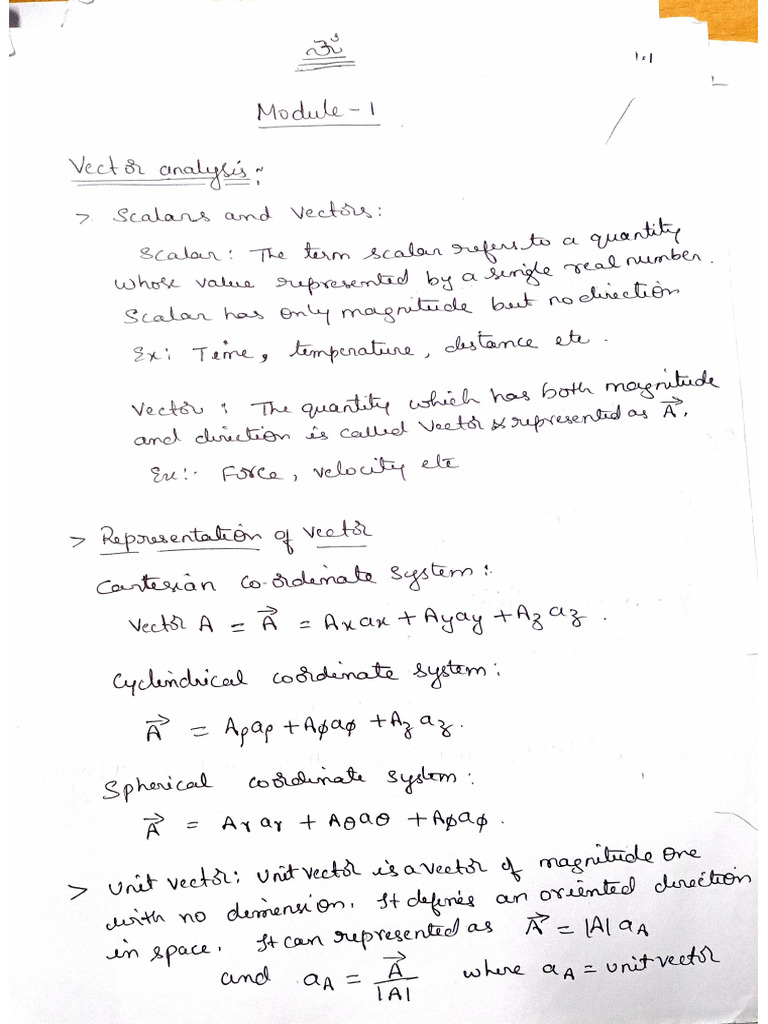 1.1
Module - 1
Vector analysis:
> Scalars and Vectors:
Scalar: The term scalar refers to a quantity
whose value represented by a single real number.
Scalar has only magnitude but no direction
Ex: Time, temperature, distance etc.
Vector: The quantity which has both magnitude
and direction is called Vector & represented as A⃗.
Ex:- Force, velocity etc
> Representation of vector
Cartesian co-ordinate system:
Vector A = A⃗ = Axax + Ayay + Azaz.
Cyclindrical coordinate system:
A⃗ = Aρaρ + Aϕaϕ + Azaz.
Spherical coordinate system:
A⃗ = Arar + Aθaθ + Aϕaϕ.
> Unit vector: Unit vector is a vector of magnitude one
with no dimension. It defines an oriented direction
in space. It can represented as A⃗ = |A| aA
and aA = A⃗ / |A| where aA = unit vector